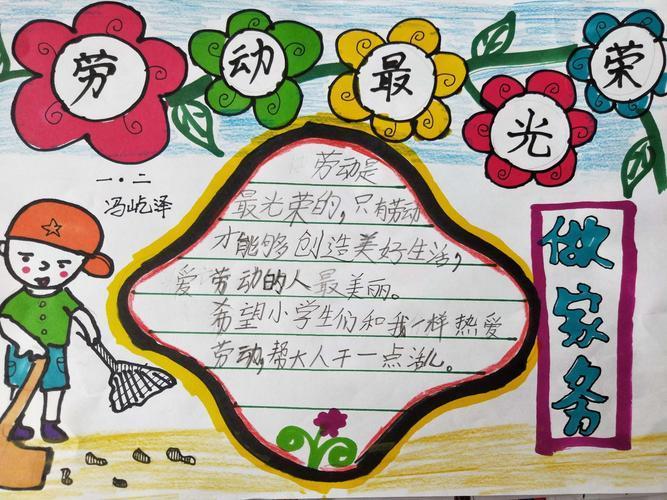 劳动最光荣
一.二
冯屹泽
劳动是
最光荣的,只有劳动
才能够创造美好生活,
爱劳动的人最美丽。
希望小学生们和我一样热爱
劳动,帮大人干一点活儿。
做家务